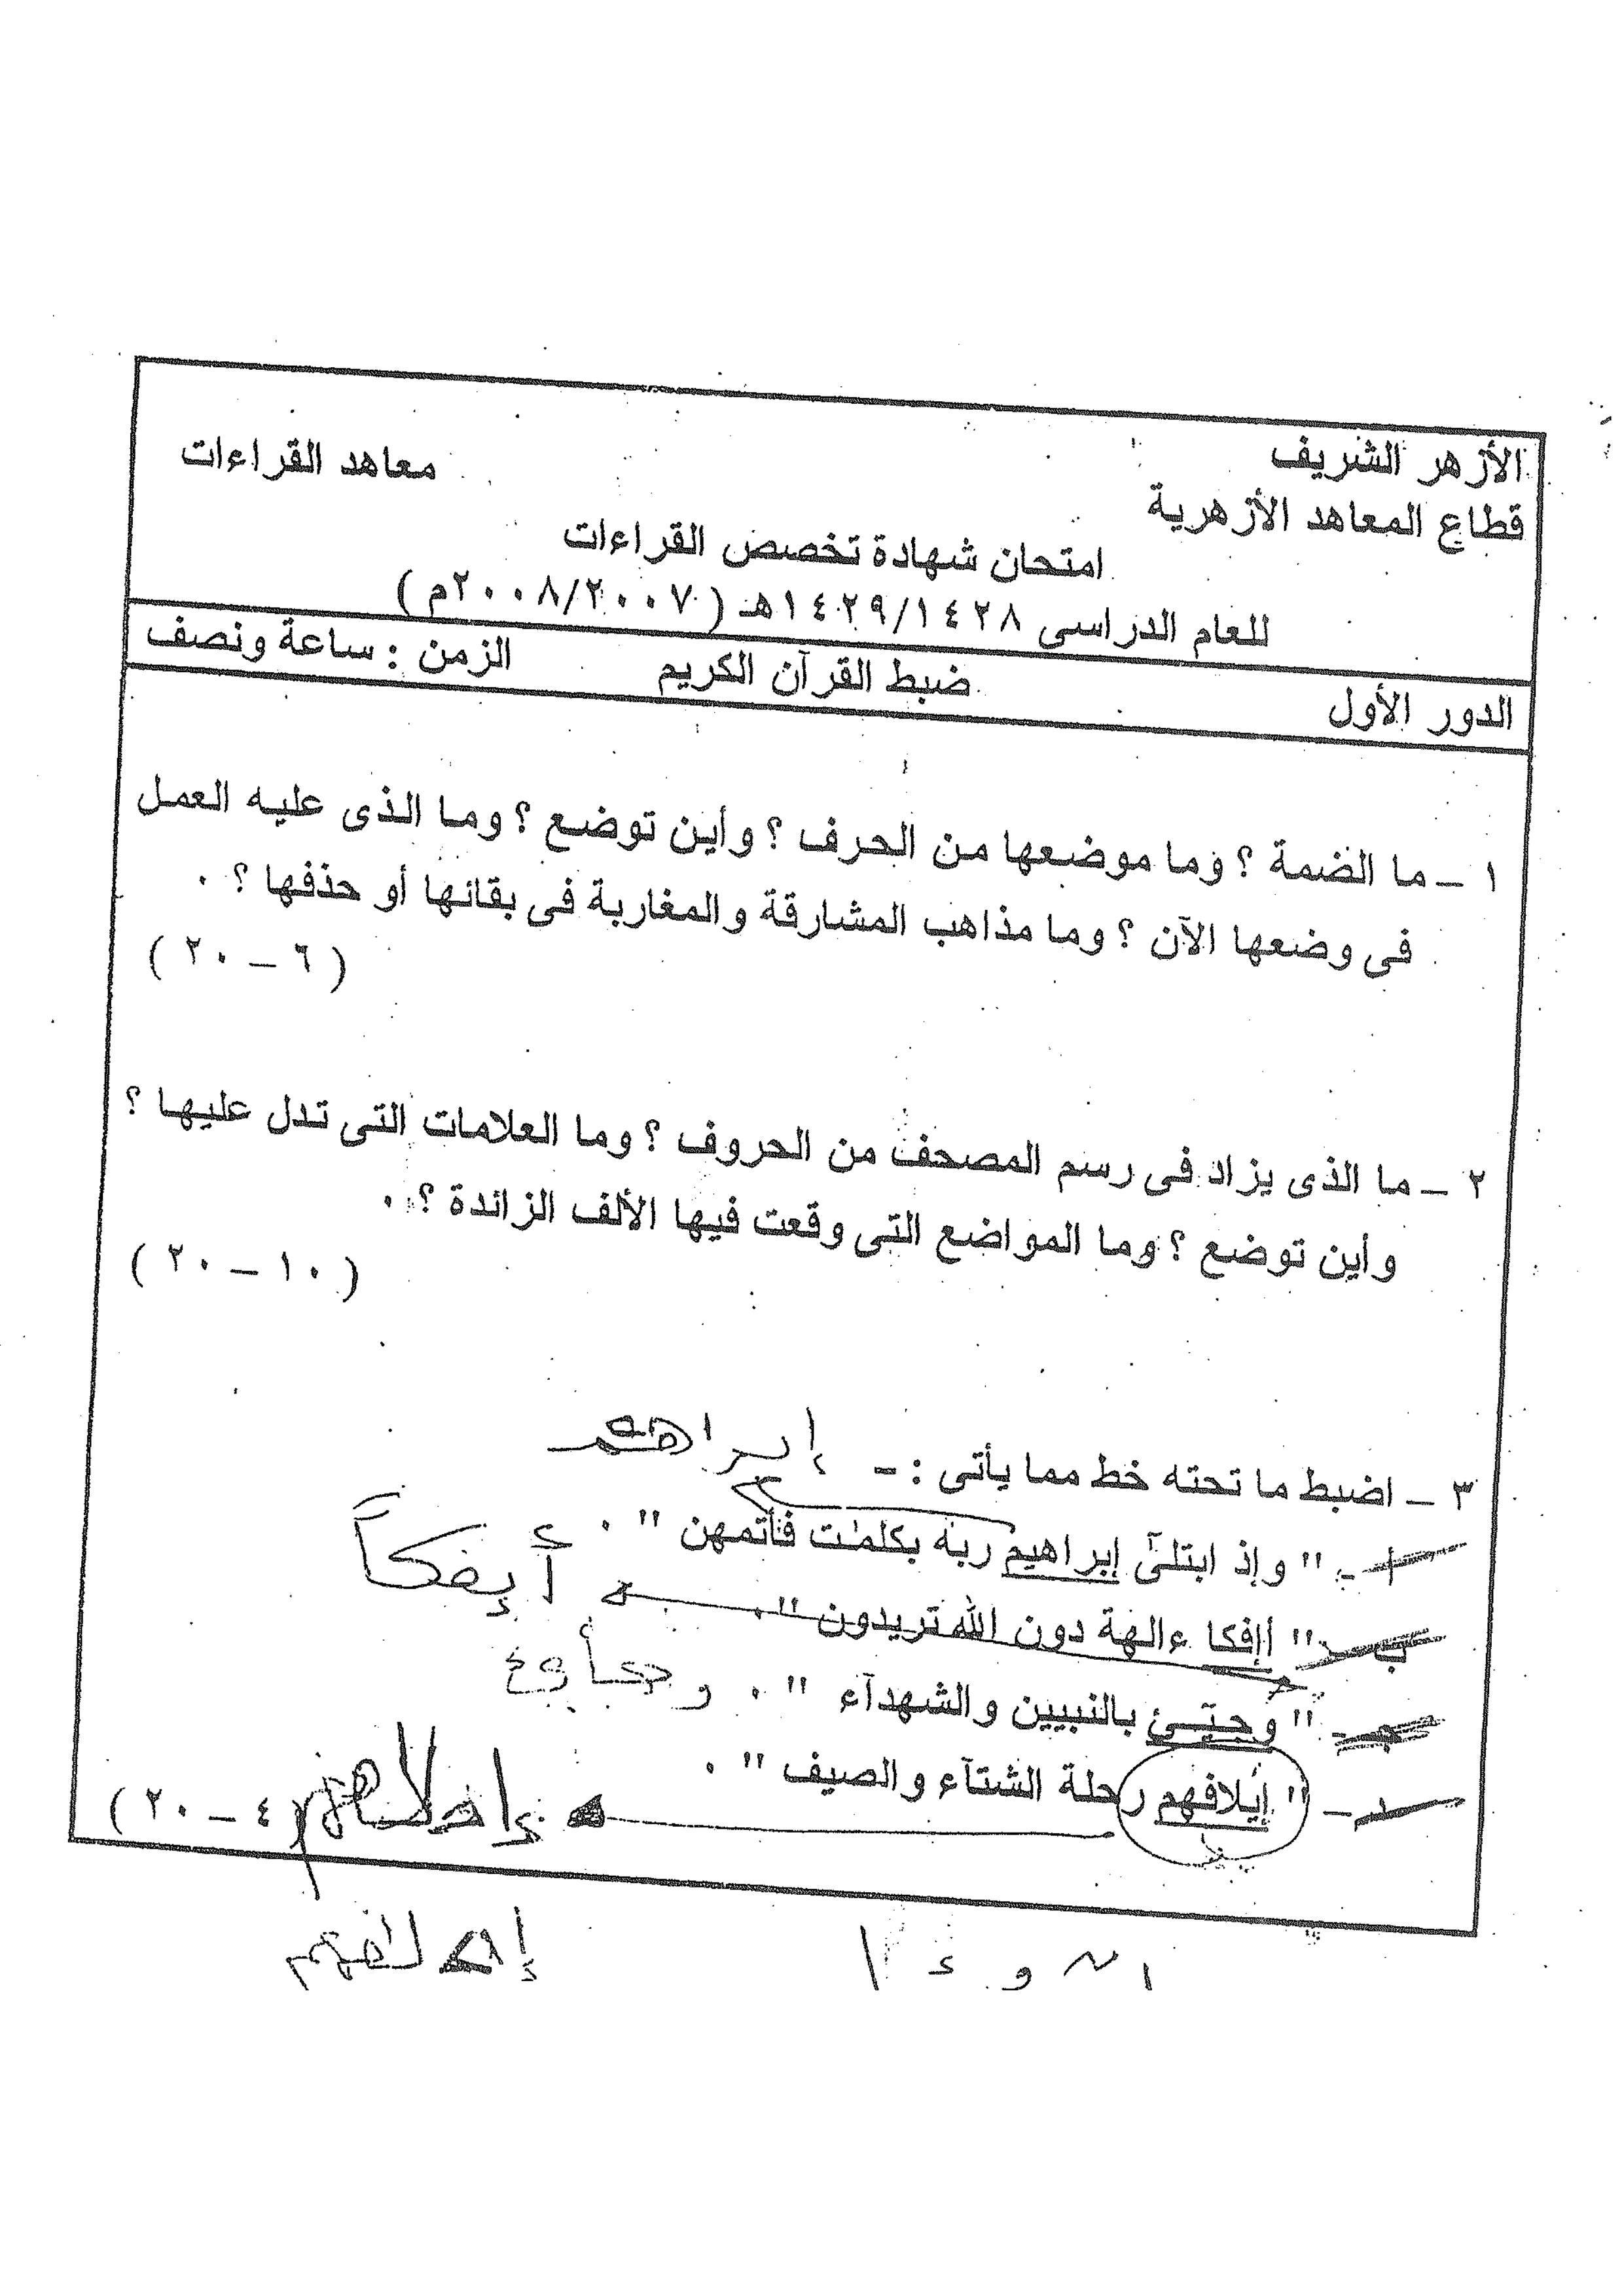 الأزهر الشريف
معاهد القراءات
قطاع المعاهد الأزهرية
امتحان شهادة تخصص القراءات
للعام الدراسى ١٤٢٩/١٤٢٨هـ (٢٠٠٨/٢٠٠٧م)
الدور الأول ضبط القرآن الكريم الزمن : ساعة ونصف
١ – ما الضمة ؟ وما موضعها من الحرف ؟ وأين توضع ؟ وما الذى عليه العمل
فى وضعها الآن ؟ وما مذاهب المشارقة والمغاربة فى بقائها أو حذفها ؟ .
( ٦ – ٢٠ )
٢ – ما الذى يزاد فى رسم المصحف من الحروف ؟ وما العلامات التى تدل عليها ؟
وأين توضع ؟ وما المواضع التى وقعت فيها الألف الزائدة ؟ .
( ١٠ – ٢٠ )
٣ – اضبط ما تحته خط مما يأتى : – إبراهيم
ا – " وإذ ابتلىٓ إبراهيم ربه بكلمٰت فأتمهن " .
ب – " أإفكا ءالهة دون الله تريدون " .
جـ – " وجآئ بالنبيين والشهدآء " .
د – " إيلافهم رحلة الشتآء والصيف " .
( ٤ – ٢٠ )